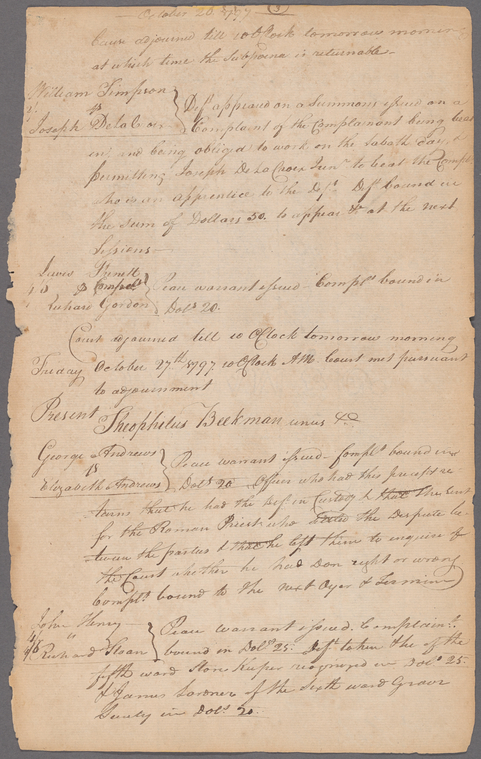 October 26 1797
Cause adjourned till 10 oClock tomorrow morning
at which time the Subpoena is returnable
William Simpson
vs
Joseph DelaCroix
Deft appeared on a Summons issued on a
Complaint of the Complainant being beat
en, and being obliged to work on the Sabath Day, &
permitting Joseph De La Croix Junr to beat the Complt
who is an apprentice to the Deft. Deft bound in
the Sum of Dollars 50. to appear &c at the next
Sessions
Lewis
vs Complt
Richard Gordon
Peace warrant issued Complt bound in
Dols 20.
Court adjourned till 10 OClock tomorrow morning
Friday October 27th 1797 10 oClock A.M. Court met pursuant
to adjournment
Present Theophilus Beekman unus &c
George Andrews
vs
Elizabeth Andrews
Peace warrant issued Complt bound in
Dols 20 Officer who had this precept re
turns that he had the Deft in Custody & that she sent
for the Roman Priest who the Dispute be
tween the parties & that he left them to enquire of
the Court whether he had Don right or wrong
Complt bound to the next Oyer & Terminer
John Henry
vs
Richard Sloan
Peace warrant issued. Complaint
bound in Dols 25. Deft taken the of the
fifth ward Store Keeper recognized in Dols 25.
& James of the Sixth ward Grocer
Surety in Dols 20.